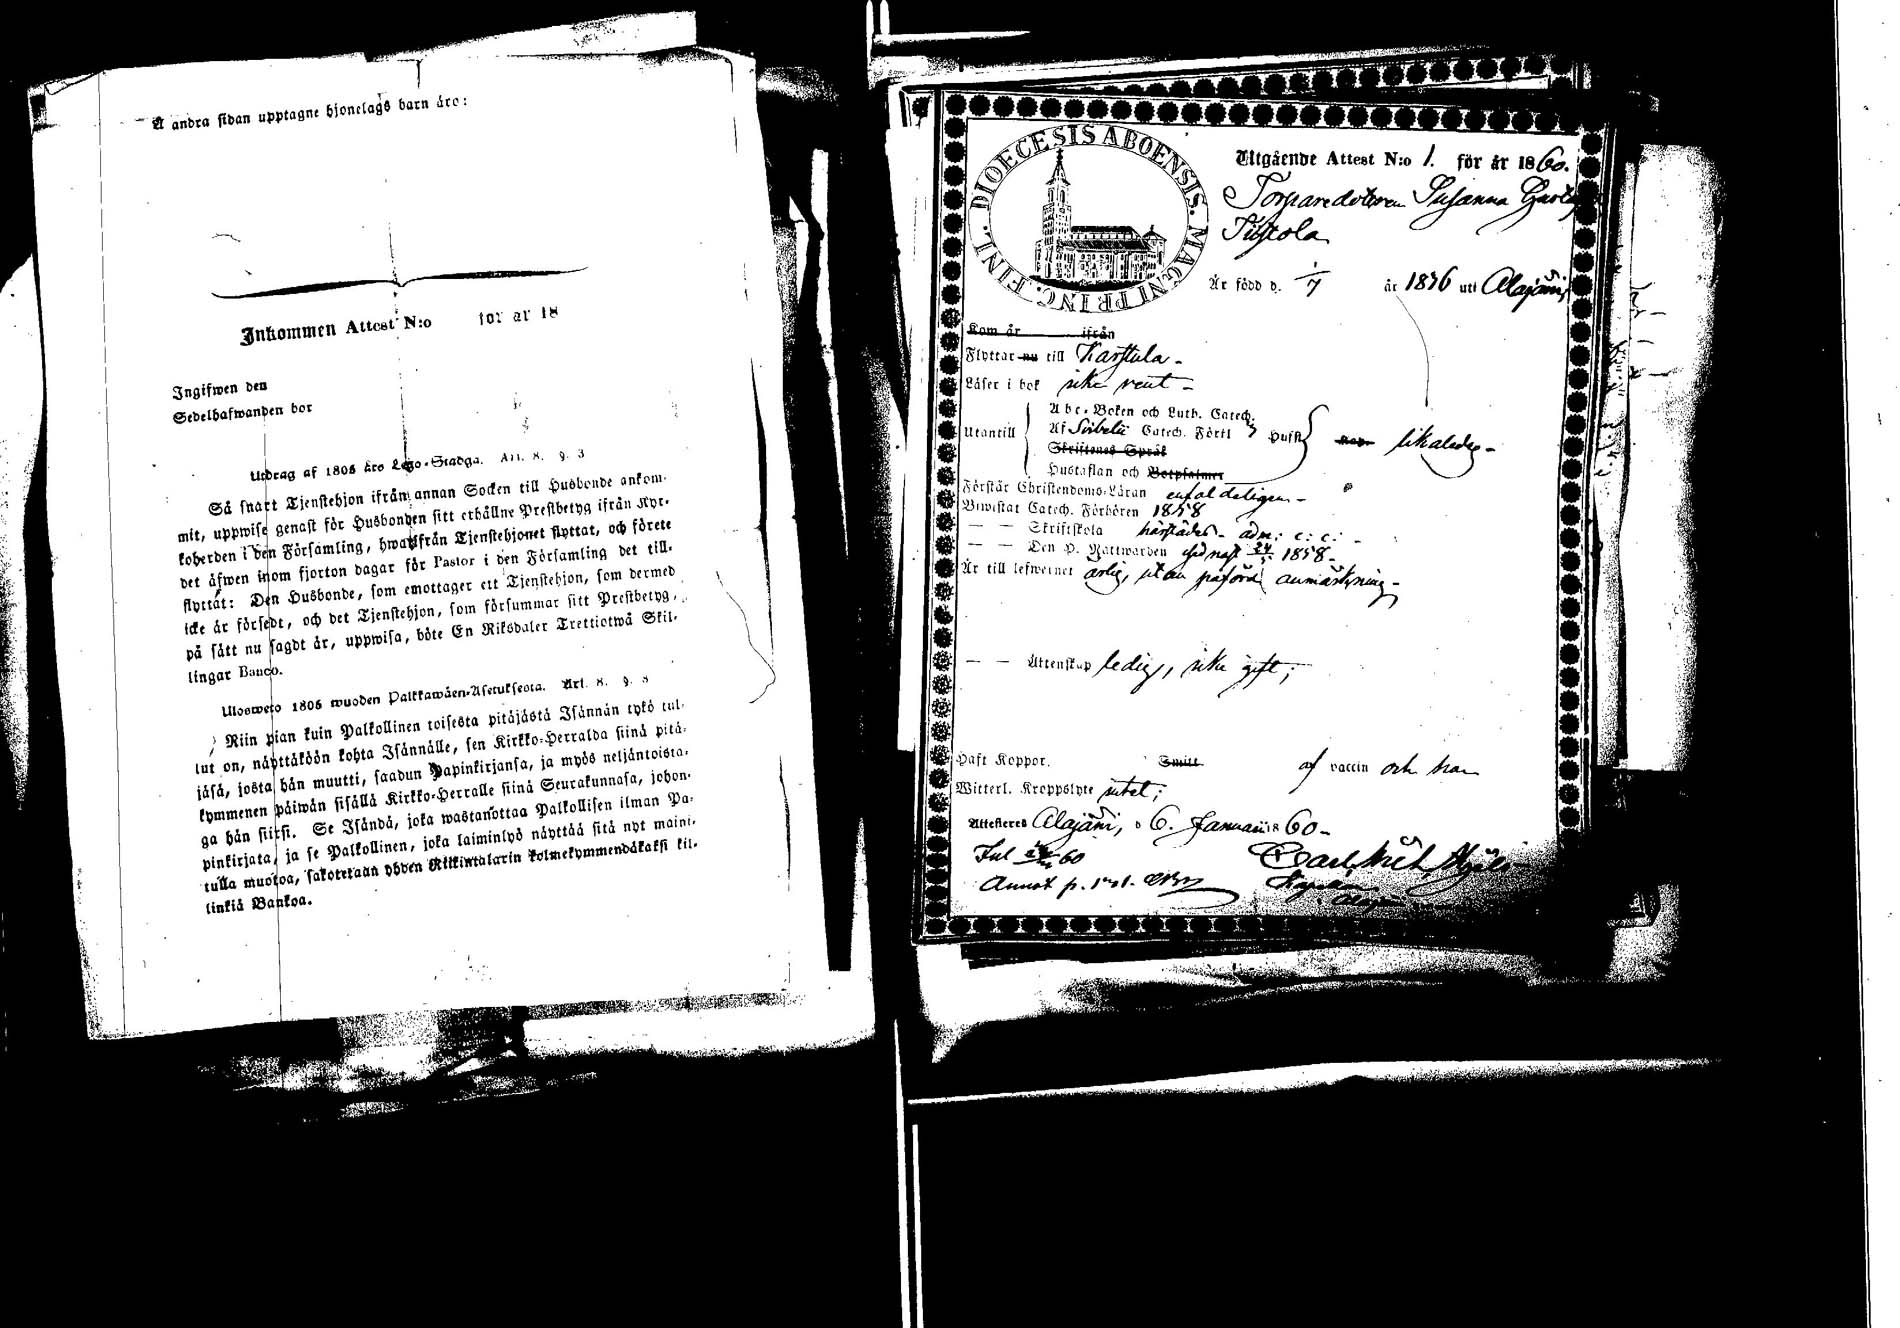 Å andra sidan upptagne hjonelags barn äro:
Inkommen Attest N:o för år 18
Ingifwen den
Sedelhafwanden bor
Utdrag af 1805 års Lego-Stadga. Art. 8. §. 3
Så snart Tjenstehjon ifrån annan Socken till Husbonde ankom-
mit, uppwise genast för Husbonden sitt erhållne Prestbetyg ifrån Kyr-
koherden i den Församling, hwarifrån Tjenstehjonet flyttat, och förete
det äfwen inom fjorton dagar för Pastor i den Församling det till-
flyttat: Den Husbonde, som emottager ett Tjenstehjon, som dermed
icke är försedt, och det Tjenstehjon, som försummar sitt Prestbetyg,
på sätt nu sagdt är, uppwisa, böte En Riksdaler Trettiotwå Skil-
lingar Banco.
Uloswero 1805 wuoden Palkkawäen-Asetuksesta. Art. 8. §. 3
Niin pian kuin Palkollinen toisesta pitäjästä Isännän tykö tul-
lut on, näyttäköön kohta Isännälle, sen Kirkko-Herralda siinä pitä-
jäsä, josta hän muutti, saadun Papinkirjansa, ja myös neljäntoista-
kymmenen päiwän sisällä Kirkko-Herralle siinä Seurakunnasa, johon-
ga hän siirsi. Se Isändä, joka wastanottaa Palkollisen ilman Pa-
pinkirjata, ja se Palkollinen, joka laiminlyö näyttää sitä nyt maini-
tulla muotoa, sakotetaan yhden Riikintalarin kolmekymmendäkaksi kil-
linkiä Bankoa.
DIOECESIS ABOENSIS. MAGNI PRINC. FINL.
Utgående Attest N:o 1. för år 1860.
Torparedottren Susanna
är född d. 1/7 år 1836 uti Alajärvi
Kom år ifrån
Flyttar nu till Karstula -
Läser i bok icke rent -
Abc-Boken och Luth. Catech.
Utantill Af Svebelii Catech. Förkl. Hufst likaledes -
Skriftenes Språk
Hustaflan och Botpsalmer
Förstår Christendoms-Läran enfaldeligen -
Biwistat Catech. Förhören 1858
— — Skriftskola härstädes - adm: c: c: -
— — Den H. Nattwarden sednast 1858 -
Är till lefwernet ärlig, utan påförd anmärkning -
— — Ägtenskap ledig, icke gift;
Haft Koppor. Smitt af vaccin och har
Witterl. Kroppslyte intet;
Attesteras Alajärvi, d 6. Januarii 1860 -
60
Annot p.
Carl